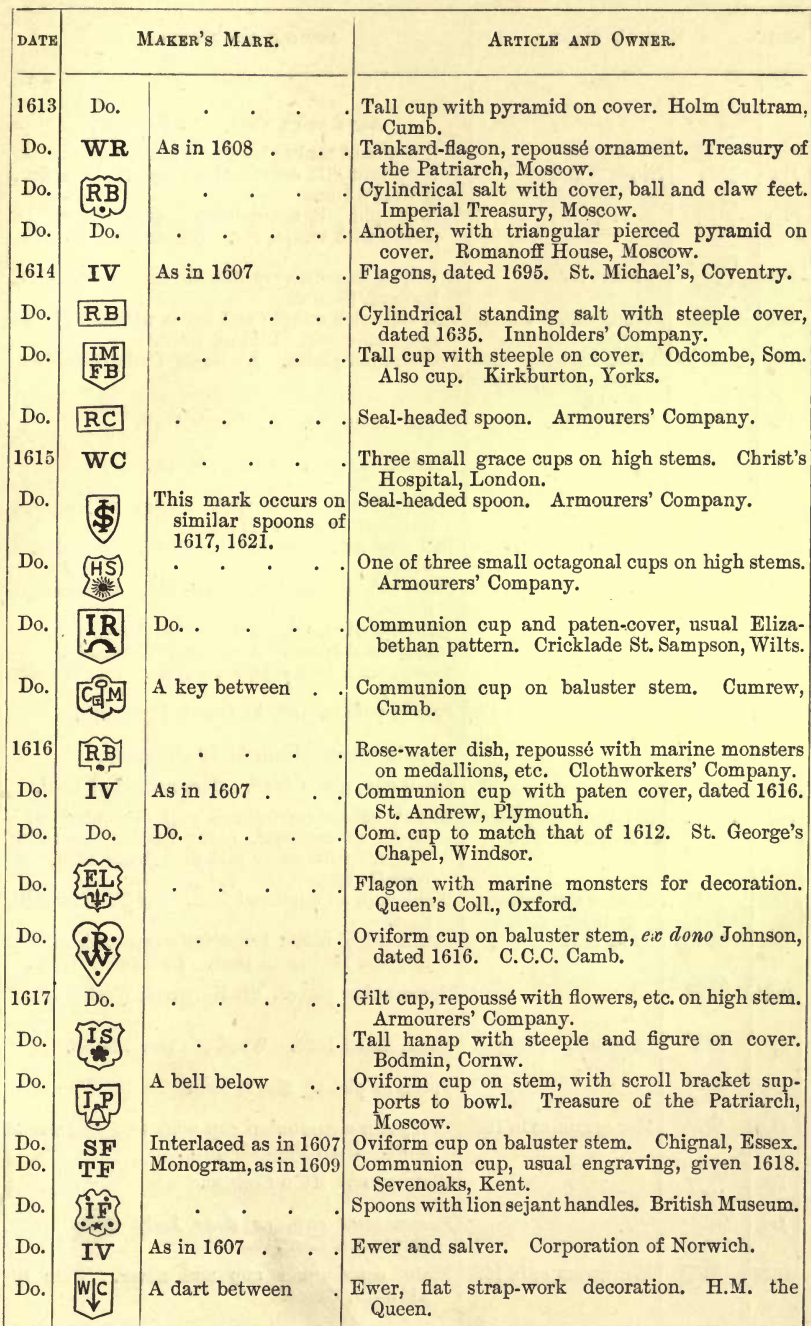 DATE MAKER'S MARK. ARTICLE AND OWNER.
1613 Do. . . . . Tall cup with pyramid on cover. Holm Cultram,
Cumb.
Do. WR As in 1608 . . . Tankard-flagon, repoussé ornament. Treasury of
the Patriarch, Moscow.
Do. RB . . . . Cylindrical salt with cover, ball and claw feet.
Imperial Treasury, Moscow.
Do. Do. . . . . . Another, with triangular pierced pyramid on
cover. Romanoff House, Moscow.
1614 IV As in 1607 . . Flagons, dated 1695. St. Michael's, Coventry.
Do. RB . . . . . Cylindrical standing salt with steeple cover,
dated 1635. Innholders' Company.
Do. IM FB . . . . Tall cup with steeple on cover. Odcombe, Som.
Also cup. Kirkburton, Yorks.
Do. RC . . . . . Seal-headed spoon. Armourers' Company.
1615 WC . . . . Three small grace cups on high stems. Christ's
Hospital, London.
Do. This mark occurs on Seal-headed spoon. Armourers' Company.
similar spoons of
1617, 1621.
Do. HS . . . . . One of three small octagonal cups on high stems.
Armourers' Company.
Do. IR Do. . . . . Communion cup and paten-cover, usual Eliza-
bethan pattern. Cricklade St. Sampson, Wilts.
Do. CM A key between . . Communion cup on baluster stem. Cumrew,
Cumb.
1616 RB . . . . Rose-water dish, repoussé with marine monsters
on medallions, etc. Clothworkers' Company.
Do. IV As in 1607 . . . Communion cup with paten cover, dated 1616.
St. Andrew, Plymouth.
Do. Do. Do. . . . . Com. cup to match that of 1612. St. George's
Chapel, Windsor.
Do. EL . . . . . Flagon with marine monsters for decoration.
Queen's Coll., Oxford.
Do. RW . . . . Oviform cup on baluster stem, ex dono Johnson,
dated 1616. C.C.C. Camb.
1617 Do. . . . . . Gilt cup, repoussé with flowers, etc. on high stem.
Armourers' Company.
Do. IS . . . . Tall hanap with steeple and figure on cover.
Bodmin, Cornw.
Do. I.P A bell below . . Oviform cup on stem, with scroll bracket sup-
ports to bowl. Treasure of the Patriarch,
Moscow.
Do. SF Interlaced as in 1607 Oviform cup on baluster stem. Chignal, Essex.
Do. TF Monogram, as in 1609 Communion cup, usual engraving, given 1618.
Sevenoaks, Kent.
Do. IF . . . . Spoons with lion sejant handles. British Museum.
Do. IV As in 1607 . . . Ewer and salver. Corporation of Norwich.
Do. WC A dart between . Ewer, flat strap-work decoration. H.M. the
Queen.